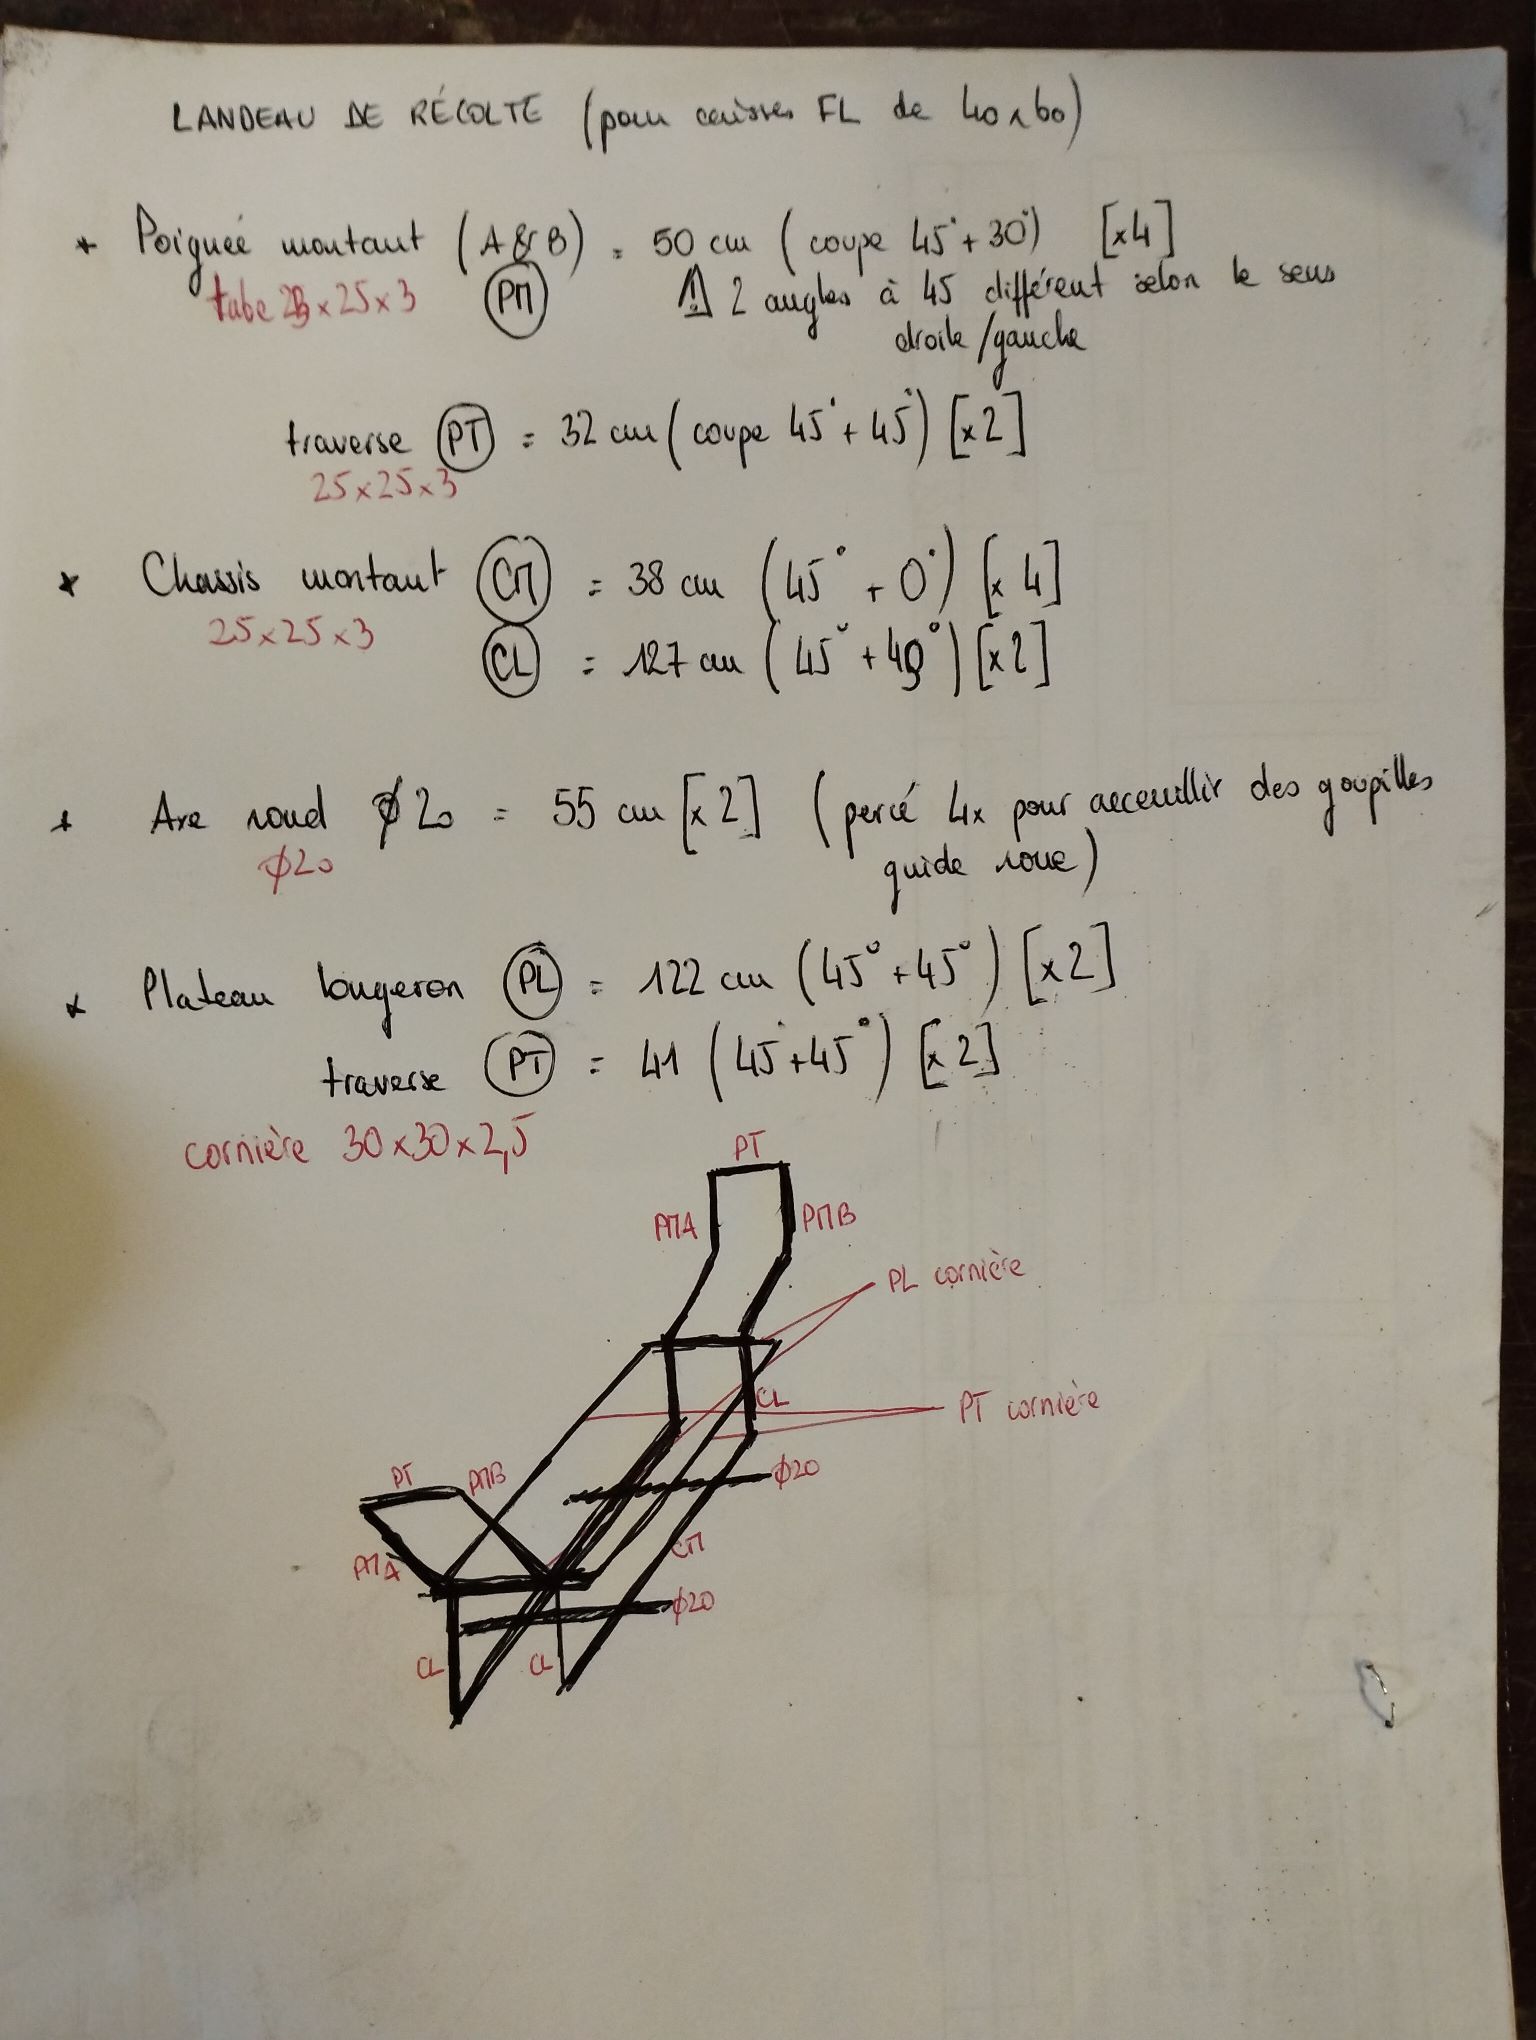 LANDEAU DE RÉCOLTE (pour caisses FL de 40x60)
* Poignée montant (A&B) = 50 cm (coupe 45° + 30°) [x4]
tube 25x25x3 PM ⚠ 2 angles à 45 différent selon le sens
droite/gauche
traverse PT = 32 cm (coupe 45° + 45°) [x2]
25x25x3
* Chassis montant CM = 38 cm (45° + 0°) [x4]
25x25x3
CL = 127 cm (45° + 45°) [x2]
* Axe rond ϕ20 = 55 cm [x2] (percé 4x pour acceuillir des goupilles
ϕ20 guide roue)
* Plateau longeron PL = 122 cm (45° + 45°) [x2]
traverse PT = 41 (45° + 45°) [x2]
cornière 30x30x2,5
PT
PMA PMB
PL cornière
CL
PT cornière
PT PMB ϕ20
PMA CM
ϕ20
CL CL